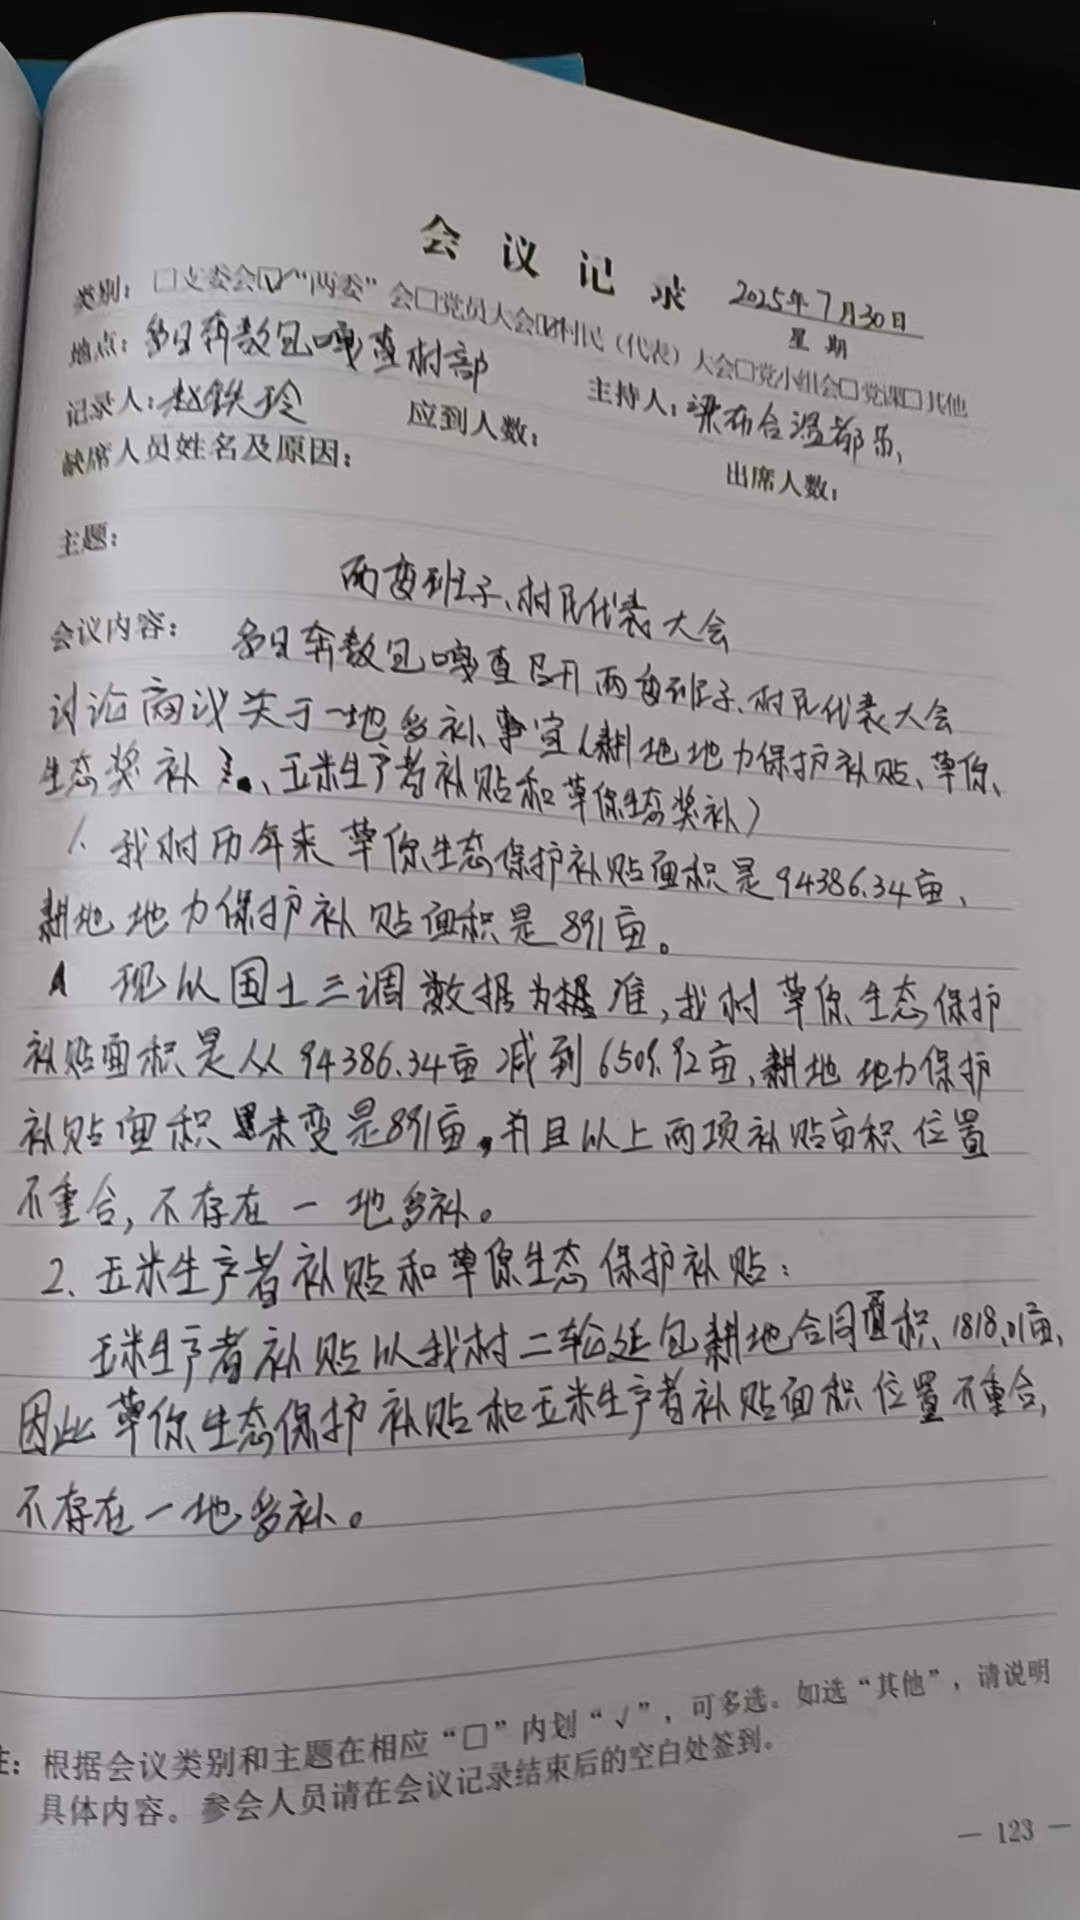 会议记录
2025年7月30日
星期
类别：□支委会☑“两委”会□党员大会☑村民（代表）大会□党小组会□党课□其他
地点：多日奔敖包嘎查村部
主持人：梁布合温都苏
记录人：赵铁玲 应到人数：
出席人数：
缺席人员姓名及原因：
主题：
两委班子、村民代表大会
会议内容： 多日奔敖包嘎查召开两委班子、村民代表大会
讨论商议关于一地多补事宜（耕地地力保护补贴、草原
生态奖补、玉米生产者补贴和草原生态奖补）
1、我村历年来草原生态保护补贴面积是94386.34亩，
耕地地力保护补贴面积是891亩。
现从国土三调数据为准，我村草原生态保护
补贴面积是从94386.34亩减到6509.92亩，耕地地力保护
补贴面积未变是891亩，并且以上两项补贴面积位置
不重合，不存在一地多补。
2、玉米生产者补贴和草原生态保护补贴：
玉米生产者补贴以我村二轮延包耕地合同面积1818.01亩，
因此草原生态保护补贴和玉米生产者补贴面积位置不重合，
不存在一地多补。
注：根据会议类别和主题在相应“□”内划“√”，可多选。如选“其他”，请说明
具体内容。参会人员请在会议记录结束后的空白处签到。
— 123 —